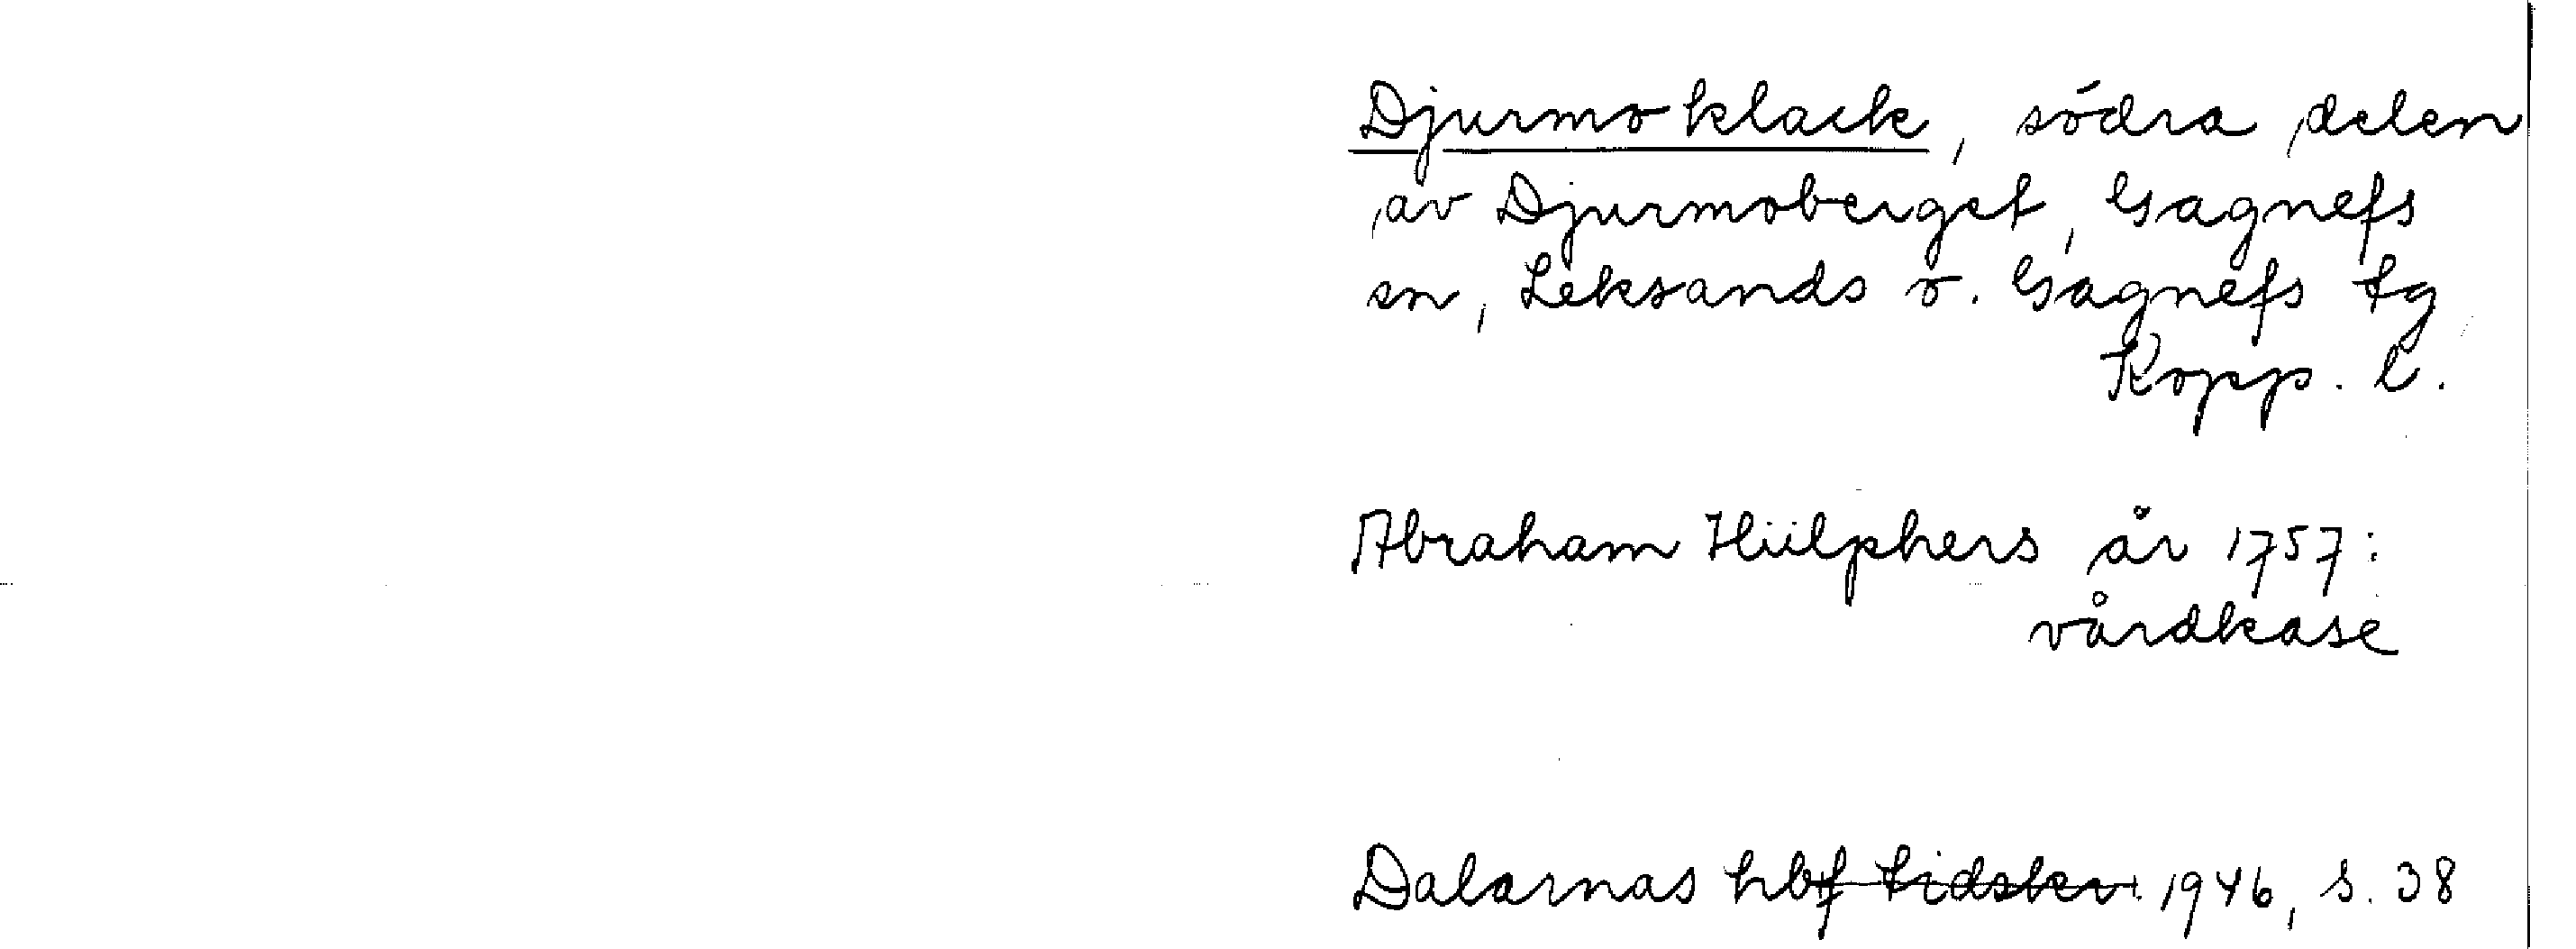 Djurmo klack, södra delen
av Djurmoberget, Gagnefs
sn, Leksands o. Gagnefs tg
Kopp. l.
Abraham Hülphers år 1757:
vårdkase
Dalarnas hbf tidskr. 1946, s. 38